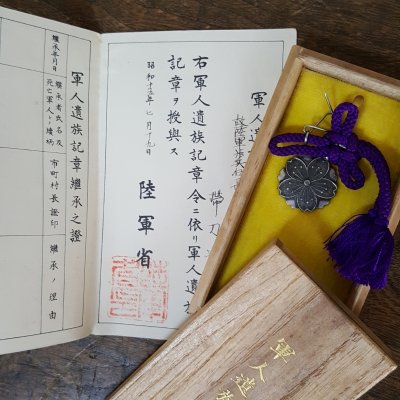 軍人遺
故陸軍歩兵
右軍人遺族記章令ニ依リ軍人遺族
記章ヲ授與ス
昭和十五年 月十九日
陸軍省
軍人遺族記章繼承之證
繼承年月日
繼承者氏名及
死亡軍人トノ續柄
市町村長證印
繼承ノ理由
軍人遺族